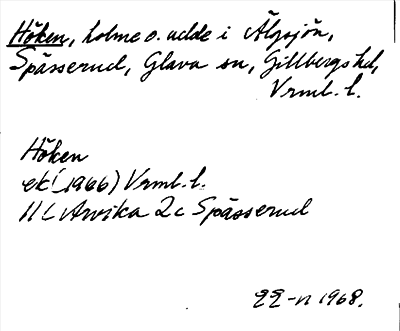 Höken, holme o. udde i Älgsjön,
Spässerud, Glava sn, Gillbergs hd,
Vrml. l.
Höken
ek (1966) Vrml. l.
11 C Arvika 2 c Spässerud
1968.